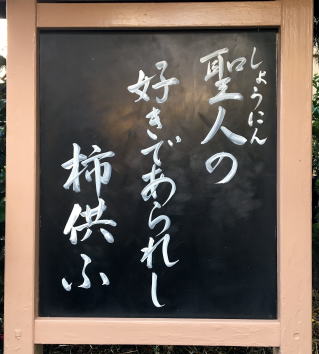 しょうにん
聖人の
好きであられし
柿供ふ